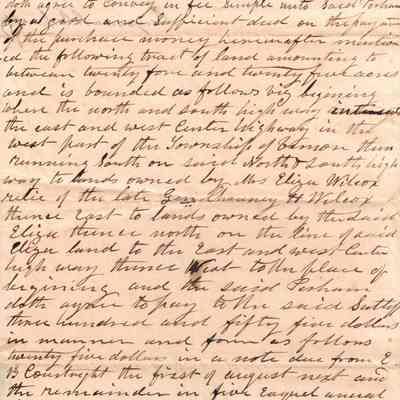 doth agree to convey in fee simple unto Said Perham
by a good and Sufficient deed on the payment
of the purchase money hereinafter mention
ed the following tract of land amounting to
between twenty four and twenty five acres
and is bounded as follows viz begining
where the north and south high way intersects
the east and west Center Highway in the
west part of the Township of Simon then
running South on said North & South high
way to lands owned by Mrs Eliza Wilcox
relic of the late Chauncy H Wilcox
thence East to lands owned by the Said
Eliza thence north on the line of said
Eliza land to the East and west Center
high way thence West to the place of
begining and the said Perham
doth agree to pay to the said
three hundred and fifty five dollars
in manner and form as follows
twenty five dollars in a note due from E
B Courtright the first of august next and
the remainder in five Eaquel anual